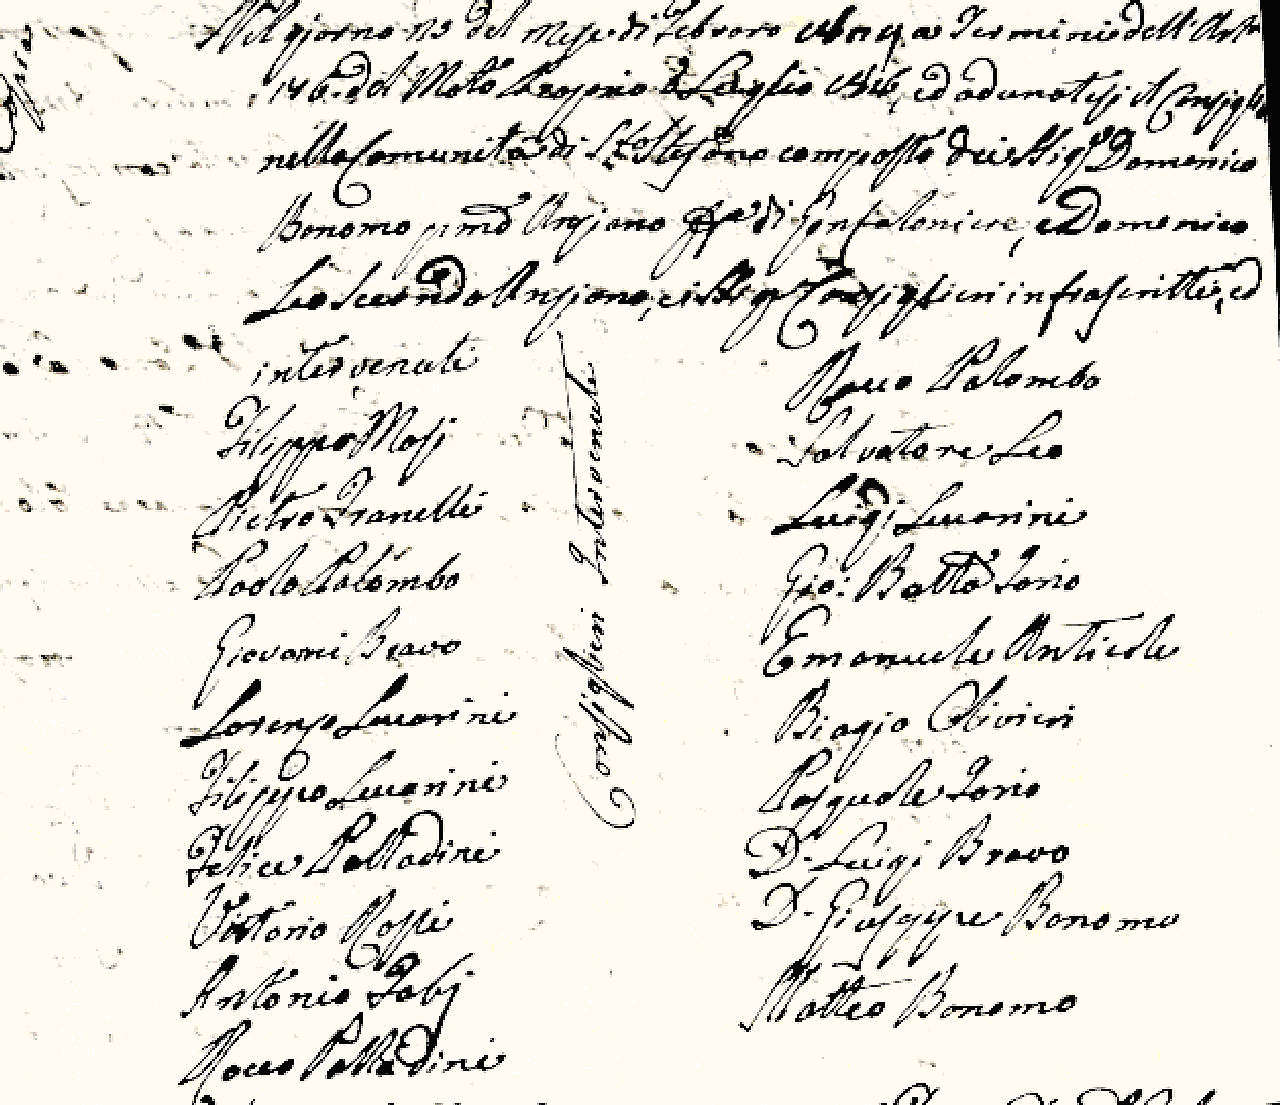 Nel giorno 13 del mese di Febraro a Termini dell'Art
146. del Moto Proprio 6 Luglio 1816, ed adunatosi il Consiglio
nella Comunità di S. Stefano composto dei Sigi Domenico
Bonomo pmo Anziano ff di Gonfaloniere, e Domenico
Leo Secondo Anziano, e i Sigi Consiglieri infrascritti, ed
intervenuti
Filippo Masj
Pietro Iranelli
Paolo Palombo
Giovanni Bravo
Lorenzo Lucarini
Filippo Lucarini
Felice Palladini
Vittorio Rossi
Antonio Fabj
Rocco Palladini
Consiglieri Intervenuti
Rocco Palombo
Salvatore Leo
Luigi Lucarini
Gio: Batta Iorio
Emanuele Anticole
Biagio Olivieri
Pasquale Iorio
D. Luigi Bravo
D. Giuseppe Bonomo
Matteo Bonomo